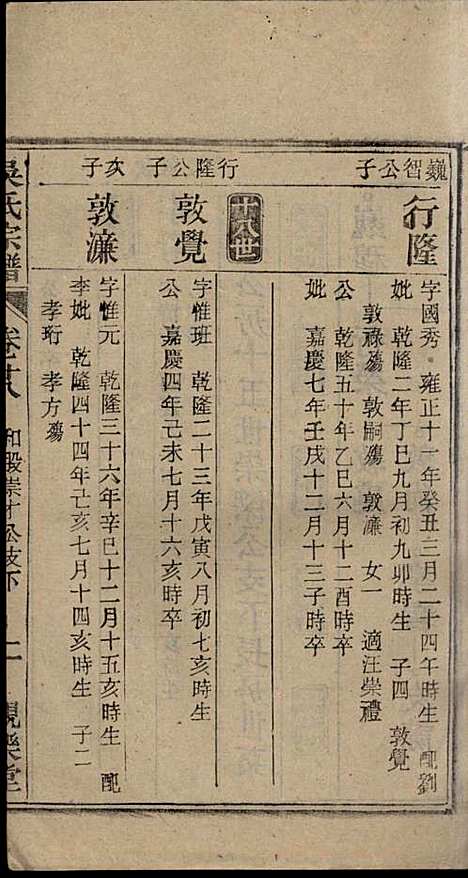 巍智公子
行隆
字國秀 雍正十一年癸丑三月二十四午時生 配劉
妣 乾隆二年丁巳九月初九卯時生 子四 敦覺
敦祿殤 敦嗣殤 敦濂 女一 適汪崇禮
公 乾隆五十年乙巳六月十二酉時卒
妣 嘉慶七年壬戌十二月十三子時卒
十八世
行隆公子
敦覺
字惟班 乾隆二十三年戊寅八月初七亥時生
公 嘉慶四年己未七月十六亥時卒
次子
敦濂
字惟元 乾隆三十六年辛巳十二月十五亥時生 配
李妣 乾隆四十四年己亥七月十四亥時生 子二
孝珩 孝方殤
吳氏宗譜 卷十八 和殿崇才公支下 十一 觀樂堂